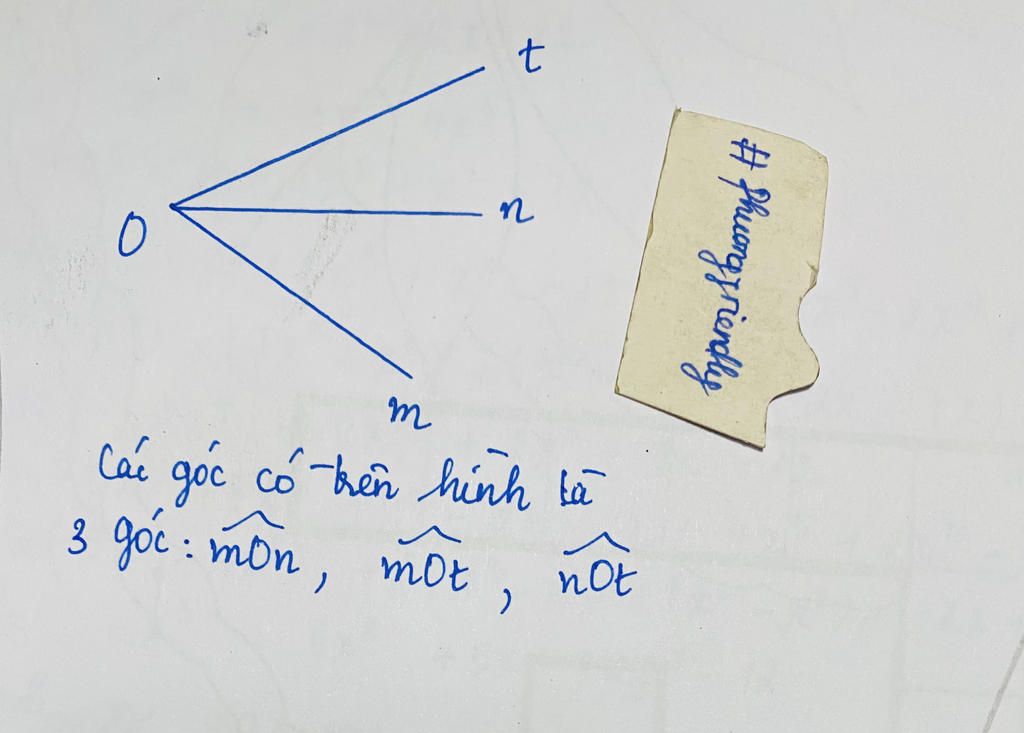 t
O
n
m
# phuongfriendly
Các góc có trên hình là
3 góc: m̂On, m̂Ot, n̂Ot